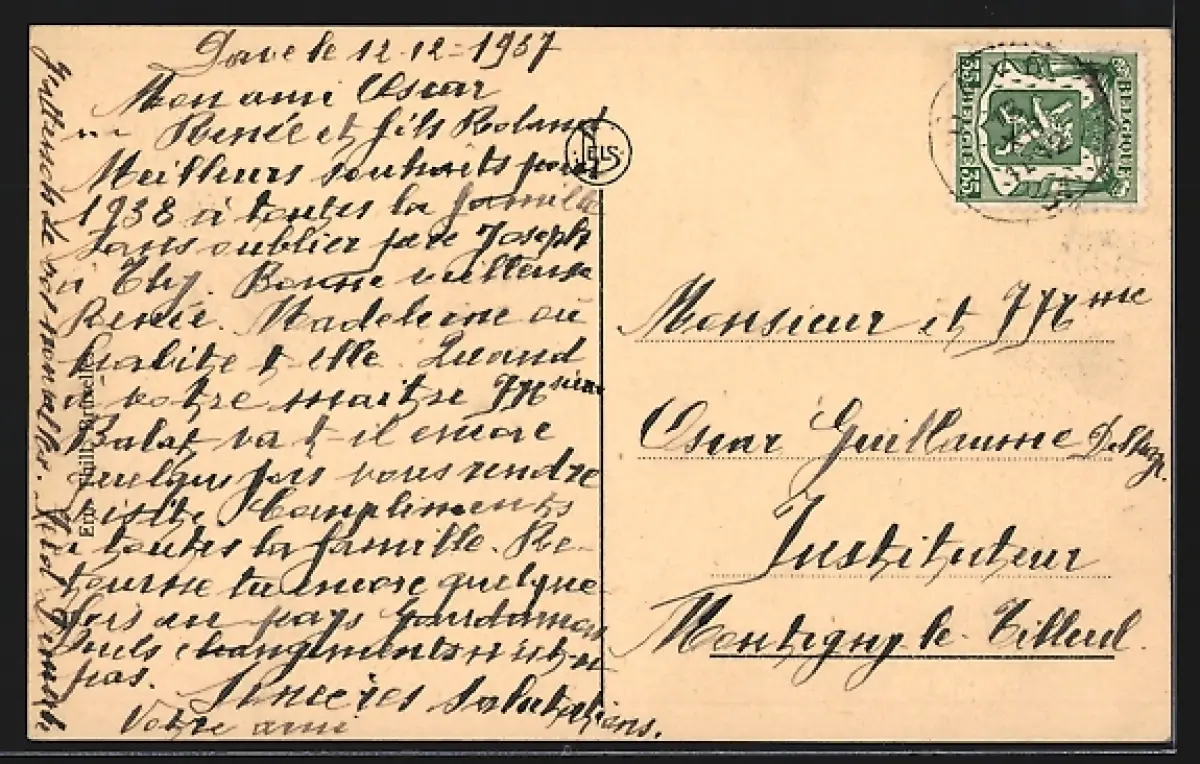 Dave le 12-12-1937
Mon ami Oscar
" " Renée et fils Roland
Meilleurs souhaits pour
1938 à toutes la famille
sans oublier père Joseph
à Thy. Bonne
Renée. Madeleine où
habite t-elle. Quand
à votre maitre Mr
Balat va t-il encore
quelque fois vous rendre
visite Compliments
à toutes la famille. Re-
tourne tu encore quelque
fois au pays
Quels changements n'est-ce
pas. Sincères Salutations.
Votre ami
de vos nouvelles.
Ern. Thill, Bruxelles
NELS
BELGIQUE
BELGIE
35
35
Monsieur et Mme
Oscar Guillaume
Instituteur
Montigny-le-Tilleul